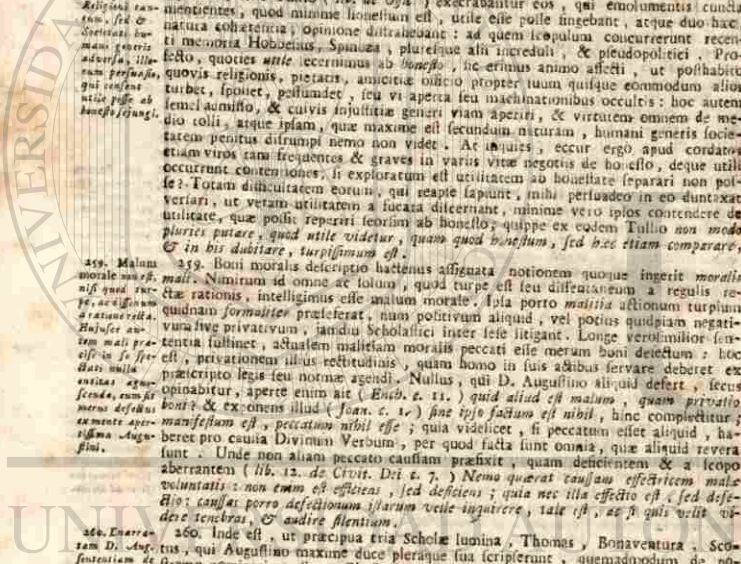 Religioni tan-
tum, sed &
Societati hu-
mani generis
adversa, illo-
rum persuasio,
qui censent
utile posse ab
honesto sejungi.
execrabantur eos, qui emolumentis cuncta
mentientes, quod minime honestum est, utile esse posse fingebant, atque duo hæc
natura cohærentia, opinione distrahebant: ad quem scopulum concurrerunt recen-
ti memoria Hobbesius, Spinoza, plurésque alii increduli, & pseudopolitici. Pro-
fecto, quoties utile secernimus ab honesto, sic erimus animo affecti, ut posthabito
quovis religionis, pietatis, amicitiæ officio propter suum quisque commodum alios
turbet, spoliet, pessumdet, seu vi aperta seu machinationibus occultis: hoc autem
semel admisso, & cuivis injustitiæ generi viam aperiri, & virtutem omnem de me-
dio tolli, atque ipsam, quæ maxime est secundum naturam, humani generis socie-
tatem penitus disrumpi nemo non videt. At inquies, eccur ergo apud cordatos
etiam viros tam frequentes & graves in variis vitæ negotiis de honesto, deque utili
occurrunt contentiones, si exploratum est utilitatem ab honestate separari non pos-
se? Totam difficultatem eorum, qui reapse sapiunt, mihi persuadeo in eo duntaxat
versari, ut veram utilitatem a fucata discernant, minime vero ipsos contendere de
utilitate, quæ possit reperiri seorsim ab honesto; quippe ex eodem Tullio non modo
pluris putare, quod utile videtur, quam quod honestum, sed hæc etiam comparare,
& in his dubitare, turpissimum est.
259. Malum
morale non est,
nisi quod tur-
pe, ac dissonum
a ratione recta.
Hujusce au-
tem mali præ-
cise in se spe-
ctati nulla
entitas agno-
scenda, cum sit
merus defectus
ex mente aper-
tissima Augu-
stini.
259. Boni moralis descriptio hactenus assignata notionem quoque ingerit moralis
mali. Nimirum id omne ac solum, quod turpe est seu dissentaneum a regulis re-
ctæ rationis, intelligimus esse malum morale. Ipsa porro malitia actionum turpium
quidnam formaliter præseferat, num positivum aliquid, vel potius quidpiam negati-
vum sive privativum, jamdiu Scholastici inter sese litigant. Longe verosimilior sen-
tentia sustinet, actualem malitiam moralis peccati esse merum boni defectum: hoc
est, privationem illius rectitudinis, quam homo in suis actibus servare deberet ex
præscripto legis seu normæ agendi. Nullus, qui D. Augustino aliquid defert, secus
opinabitur, aperte enim ait (Ench. c. 11.) quid aliud est malum, quam privatio
boni? & exponens illud (Joan. c. 1.) sine ipso factum est nihil, hinc complectitur;
manifestum est, peccatum nihil esse; quia videlicet, si peccatum esset aliquid, ha-
beret pro caussa Divinum Verbum, per quod facta sunt omnia, quæ aliquid revera
sunt. Unde non aliam peccato caussam præfixit, quam deficientem & a scopo
aberrantem (lib. 12. de Civit. Dei c. 7.) Nemo quærat caussam effectricem malæ
voluntatis: non enim est efficiens, sed deficiens; quia nec illa effectio est, sed defe-
ctio: caussas porro defectionum istarum velle inquirere, tale est, ac si quis velit vi-
dere tenebras, & audire silentium.
260. Enarra-
tam D. Aug.
sententiam de
260. Inde est, ut præcipua tria Scholæ lumina, Thomas, Bonaventura, Sco-
tus, qui Augustino maxime duce pleraque sua scripserunt, quemadmodum de